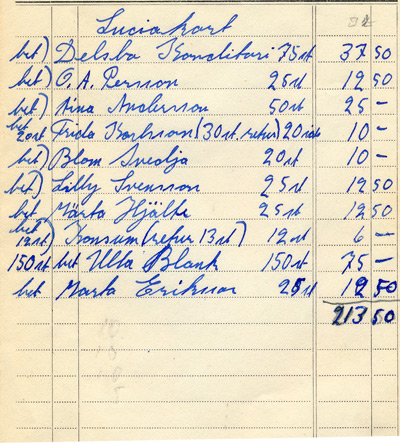 Luciakort
bet) Delsbo Konditori 75 st 37 50
bet) O. A. Persson 25 st 12 50
bet) Nina Andersson 50 st 25 —
bet 20 st Frida Karlsson (30 st. retur) 20 st 10 —
bet) Blom Svedja 20 st 10 —
bet) Lilly Svensson 25 st 12 50
bet Märta Hjälte 25 st 12 50
bet 12 st) Konsum (retur 13 st) 12 st 6 —
150 st bet Ulla Blank 150 st 75 —
bet Marta Eriksson 25 st 12 50
213 50